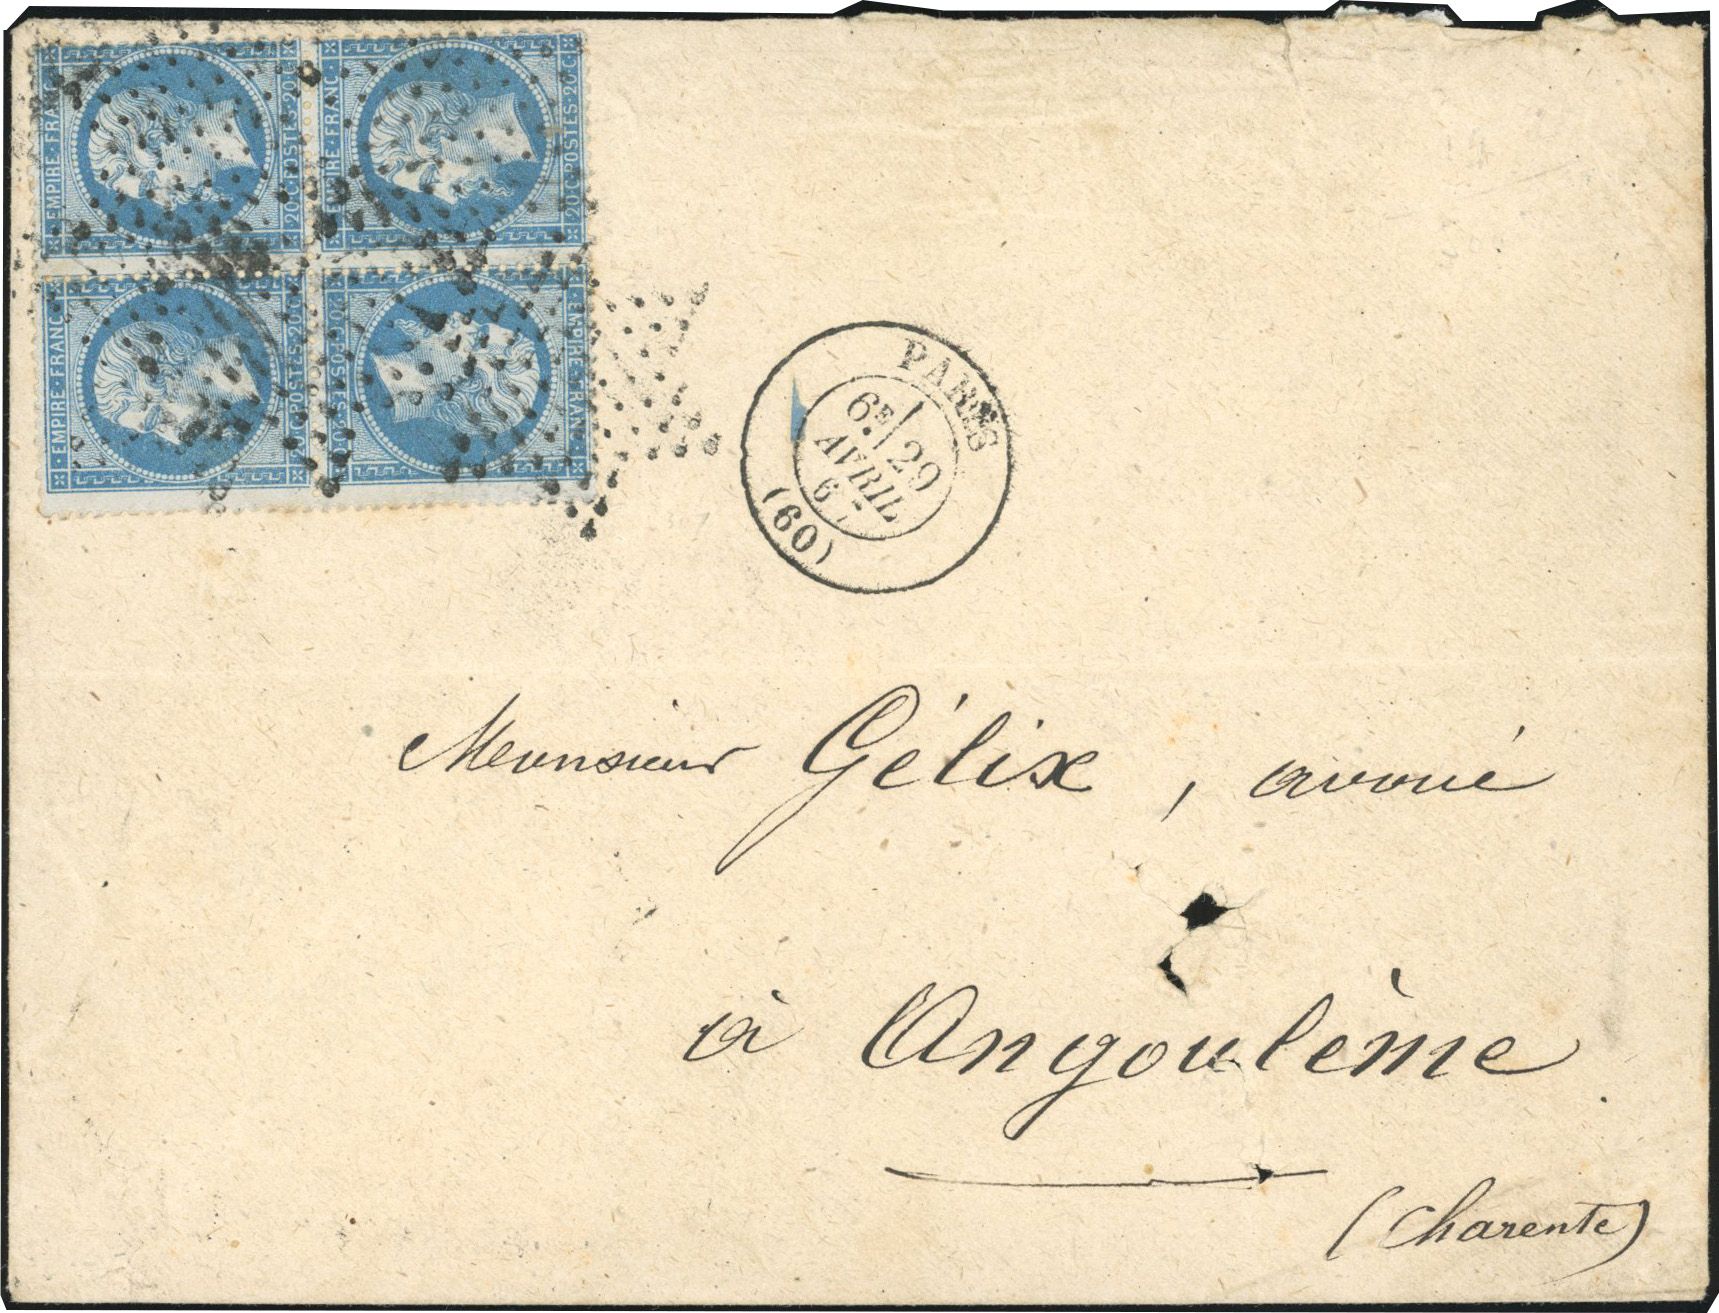 EMPIRE · FRANC · 20 C · POSTES · 20 C
EMPIRE · FRANC · 20 C · POSTES · 20 C
EMPIRE · FRANC · 20 C · POSTES · 20 C
EMPIRE · FRANC · 20 C · POSTES · 20 C
PARIS
6E 29
AVRIL
67
(60)
Monsieur Gélix, avoué
à Angoulême
(Charente)